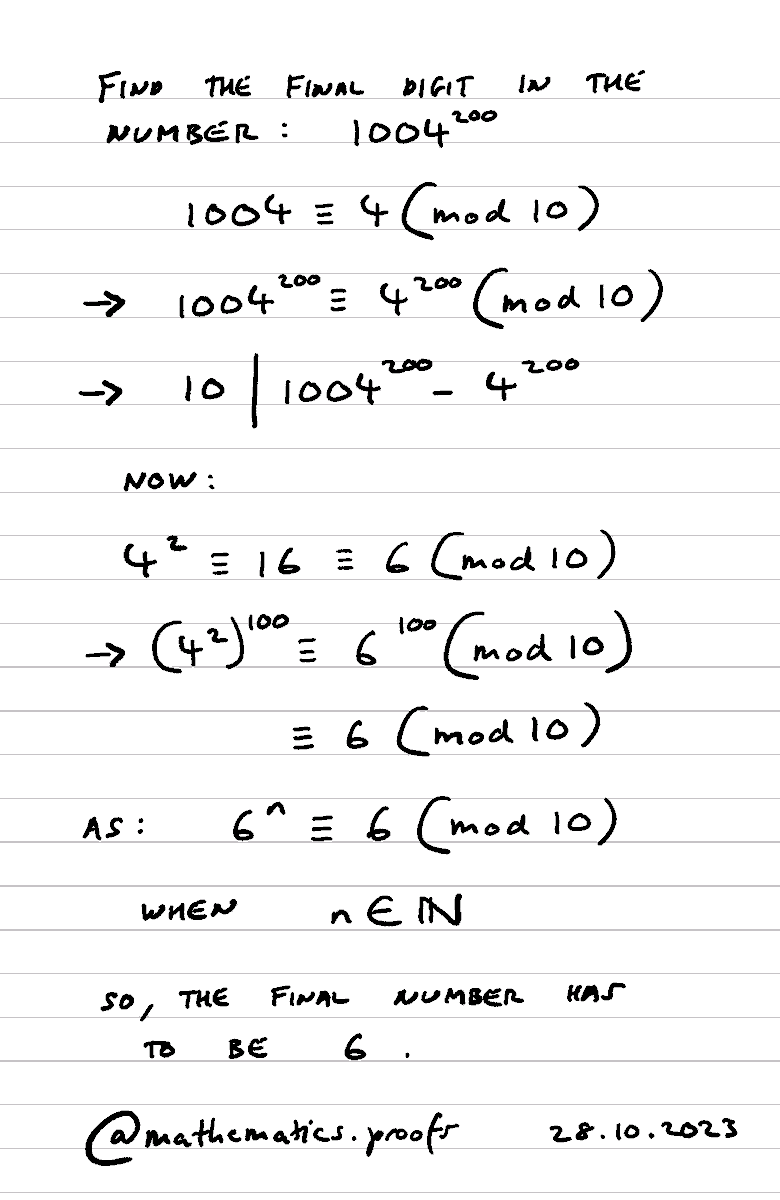 FIND THE FINAL DIGIT IN THE
NUMBER: 1004²⁰⁰
1004 ≡ 4 (mod 10)
→ 1004²⁰⁰ ≡ 4²⁰⁰ (mod 10)
→ 10 | 1004²⁰⁰ - 4²⁰⁰
NOW:
4² ≡ 16 ≡ 6 (mod 10)
→ (4²)¹⁰⁰ ≡ 6¹⁰⁰ (mod 10)
≡ 6 (mod 10)
AS: 6ⁿ ≡ 6 (mod 10)
WHEN n ∈ ℕ
SO, THE FINAL NUMBER HAS
TO BE 6.
@mathematics.proofs 28.10.2023